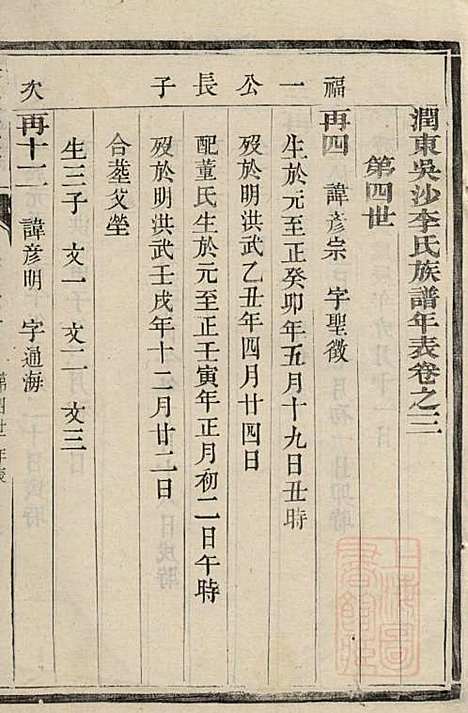 潤東吳沙李氏族譜年表卷之三
第四世
福一公長子
再四 諱彥宗 字聖徵
生於元至正癸卯年五月十九日丑時
歿於明洪武乙丑年四月廿四日
配董氏生於元至正壬寅年正月初二日午時
歿於明洪武壬戌年十二月廿二日
合塟父塋
生三子 文一 文二 文三
次
再十二 諱彥明 字通海
第四世年表